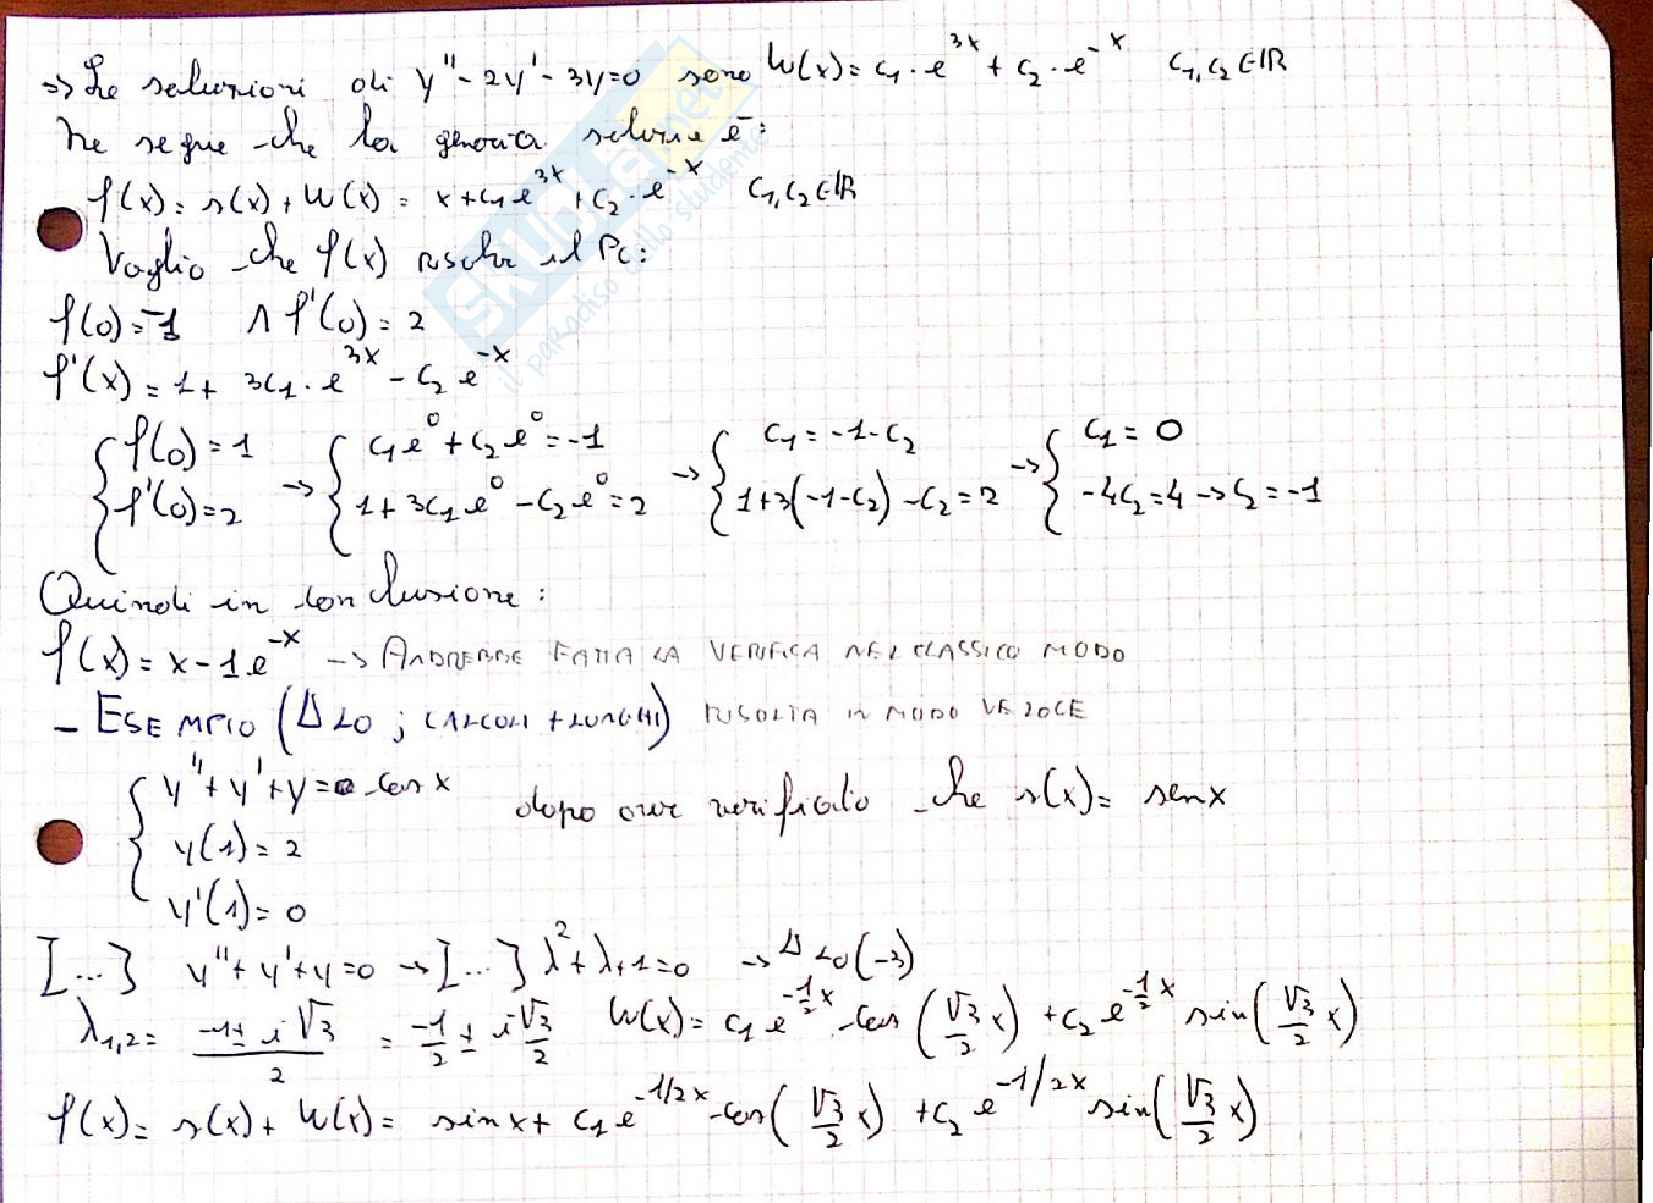 => Le soluzioni di y'' - 2y' - 3y = 0 sono W(x) = c₁ · e^{3x} + c₂ · e^{-x}   c₁, c₂ ∈ ℝ
Ne segue che la generica soluzione è:
f(x) = s(x) + W(x) = x + c₁ e^{3x} + c₂ · e^{-x}   c₁, c₂ ∈ ℝ
Voglio che f(x) risolva il PC:
f(0) = -1   ∧ f'(0) = 2
f'(x) = 1 + 3c₁ · e^{3x} - c₂ e^{-x}
{ f(0) = 1 -> { c₁e⁰ + c₂e⁰ = -1 -> { c₁ = -1 - c₂ -> { c₁ = 0
{ f'(0) = 2   { 1 + 3c₁e⁰ - c₂e⁰ = 2   { 1 + 3(-1 - c₂) - c₂ = 2   { -4c₂ = 4 -> c₂ = -1
Quindi in conclusione:
f(x) = x - 1 · e^{-x} -> ANDREBBE FATTA LA VERIFICA NEL CLASSICO MODO
- ESEMPIO (Δ<0 ; CALCOLI + LUNGHI) RISOLTA IN MODO VELOCE
{ y'' + y' + y = cos x   dopo aver verificato che s(x) = sen x
{ y(1) = 2
{ y'(1) = 0
[...] y'' + y' + y = 0 -> [...] λ² + λ + 1 = 0 -> Δ<0 (-3)
λ₁,₂ = (-1 ± i√3)/2 = -1/2 ± i√3/2   W(x) = c₁ e^{-1/2 x} · cos(√3/2 x) + c₂ e^{-1/2 x} sin(√3/2 x)
f(x) = s(x) + W(x) = sin x + c₁ e^{-1/2 x} · cos(√3/2 x) + c₂ e^{-1/2 x} sin(√3/2 x)
SKUOLA.net
il paradiso dello studente